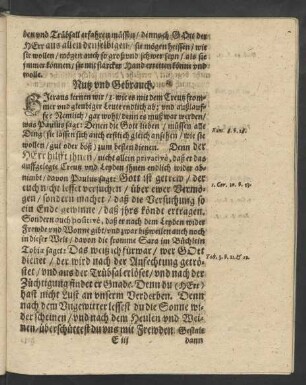 ben und Trübsall erfahren müssen / dennoch GOtt der
HErr aus allen denselbigen / sie mögen heissen / wie
sie wollen / mögen auch so groß und schwer seyn / als sie
immer können / sie mit starcker Hand erretten könne und
wolle.
Nutz und Gebrauch.
Hieraus lernen wir / 1. wie es mit dem Creutz from-
mer und gleubiger Leute endlich ab / und auslauf-
fe: Nemlich / gar wohl / denn es muß war werden /
was Paulus saget: Denen die Gott lieben / müssen alle
Ding / sie lassen sich auch erstlich gleich ansehen / wie sie
wollen / gut oder böß / zum besten dienen. Denn der
Rom. 8. v. 28.
HErr hilfft ihnen / nicht allein privativè, daß er das
auffgelegte Creutz und Leyden ihnen endlich wider ab-
nimbt / davon Paulus saget: Gott ist getrew / der
1. Cor. 10. v. 13.
euch nicht lesset versuchen / über ewer Vermö-
gen / sondern machet / daß die Versuchung so
ein Ende gewinne / daß jhrs köndt ertragen.
Sondern auch positivè, daß er nach dem Leyden wider
Frewde und Wonne gibt / und zwar bißweilen auch noch
in dieser Welt / davon die fromme Sara im Büchlein
Tobiæ saget: Das weiß ich fürwar / wer GOtt
Tob. 3. v. 21. & 22.
dienet / der wird nach der Anfechtung getrö-
stet / und aus der Trübsal erlöset / und nach der
Züchtigung findet er Gnade. Denn du (HErr)
hast nicht Lust an unserm Verderben. Denn
nach dem Ungewitter lessest du die Sonne wi-
der scheinen / und nach dem Heulen und Wei-
nen / überschüttest du uns mit Frewden. Gestalt
E iij
dann